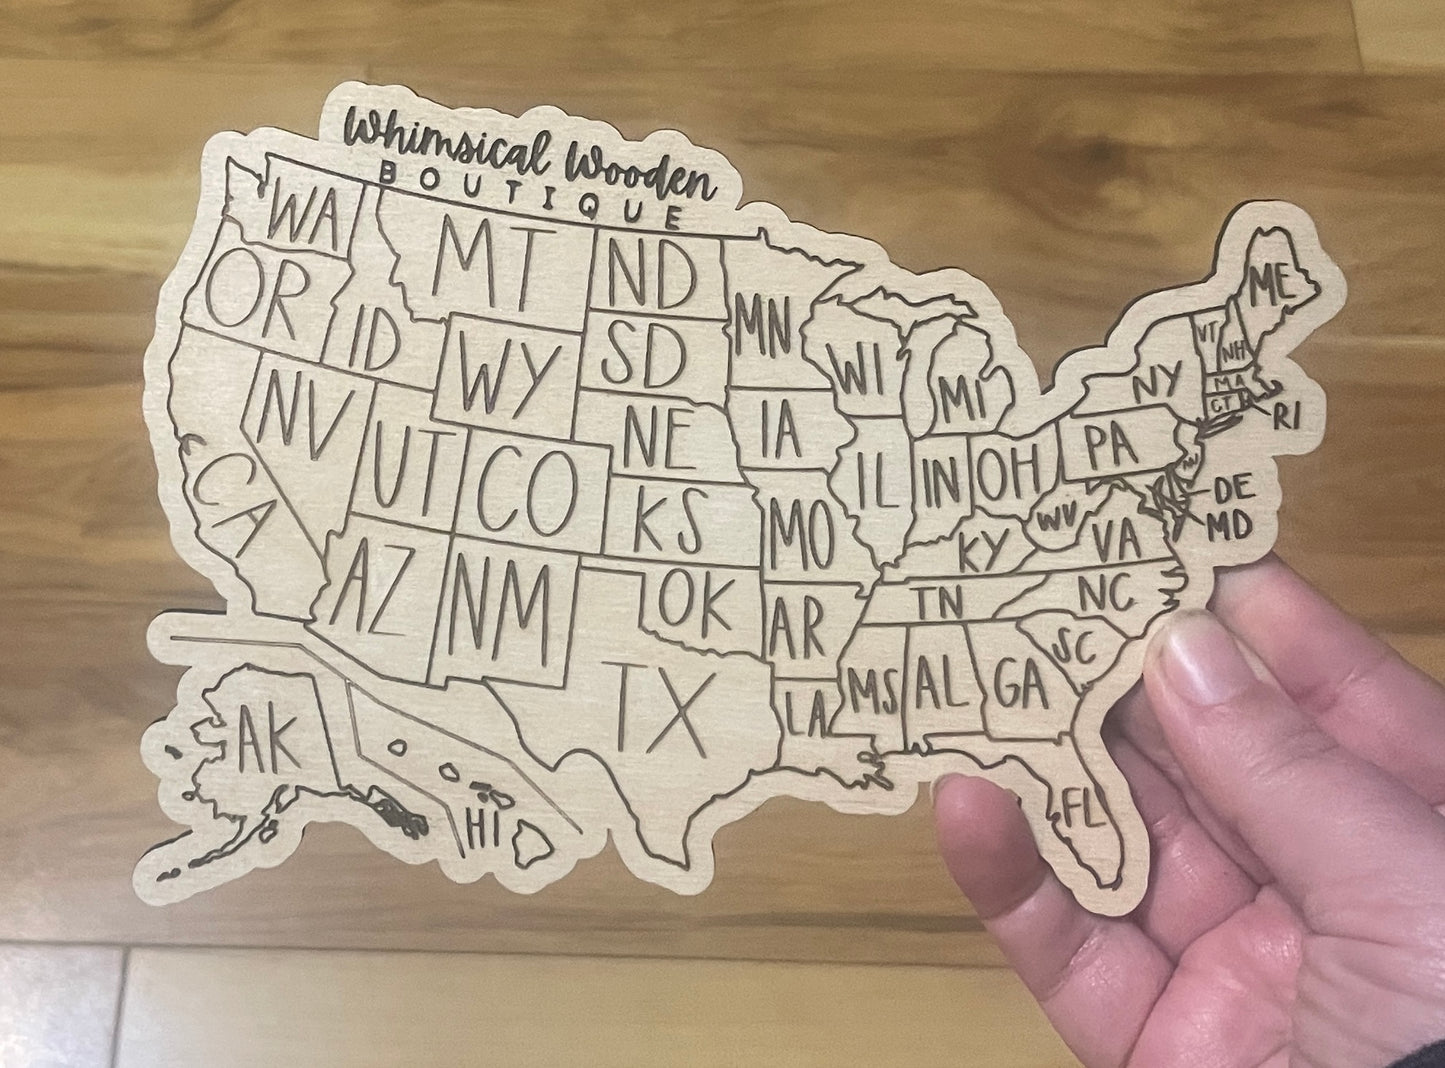 Whimsical Wooden
BOUTIQUE
WA
MT
ND
MN
OR
ID
WY
SD
WI
MI
ME
VT
NH
NY
MA
CT
RI
NV
UT
CO
NE
IA
IL
IN
OH
PA
NJ
DE
MD
CA
KS
MO
KY
WV
VA
AZ
NM
OK
AR
TN
NC
SC
TX
LA
MS
AL
GA
FL
AK
HI